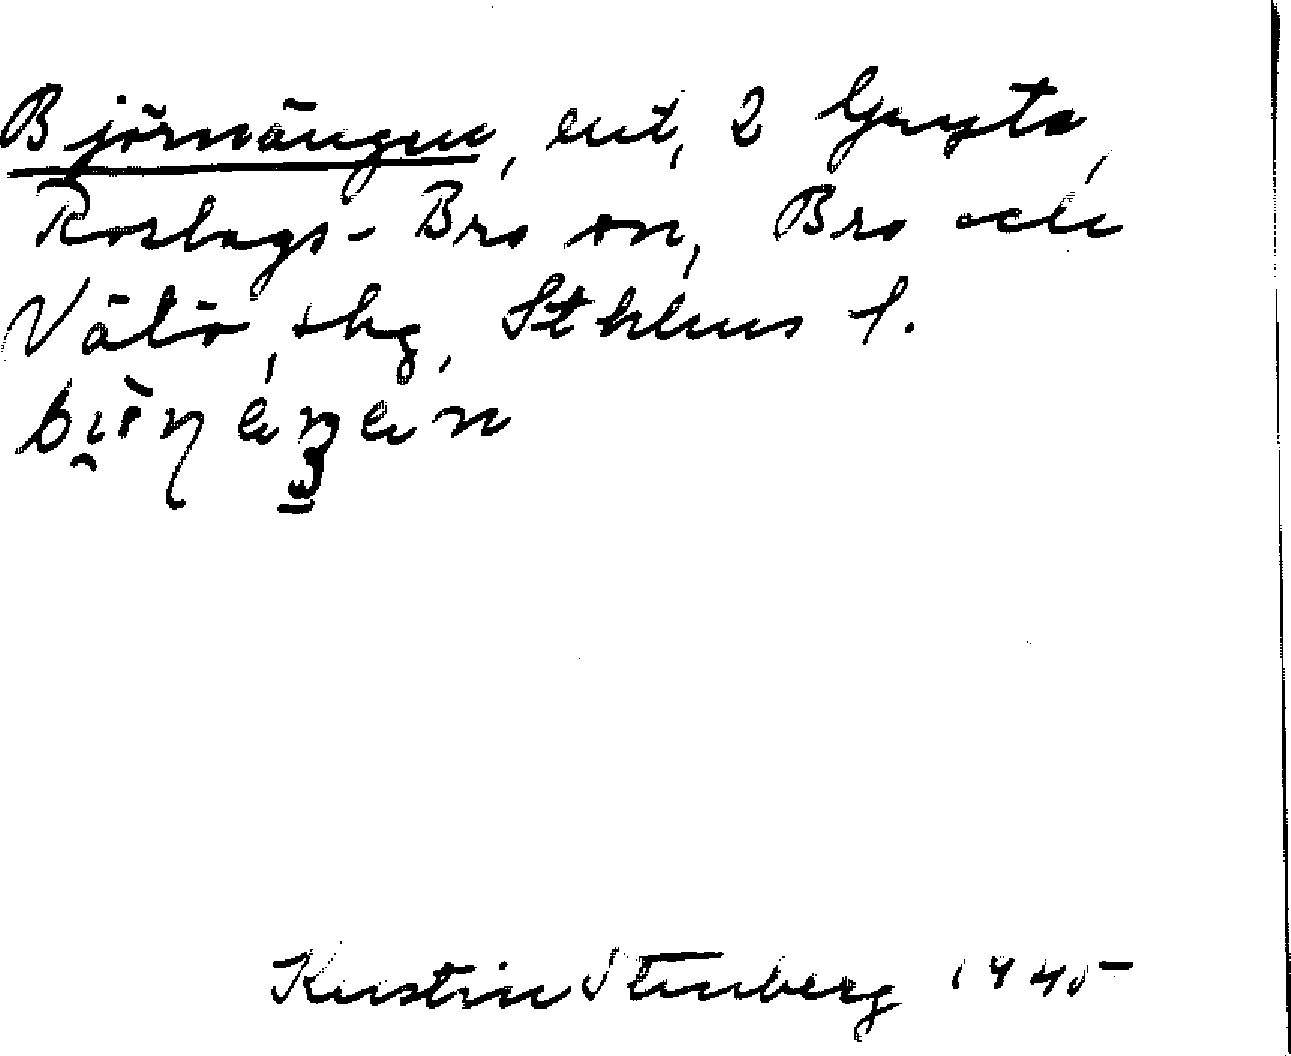 Björnängen, ent, 2 Gryta,
Roslags-Bro sn, Bro och
Vätö shg, Sthlms l.
Kerstin Stenberg 1945